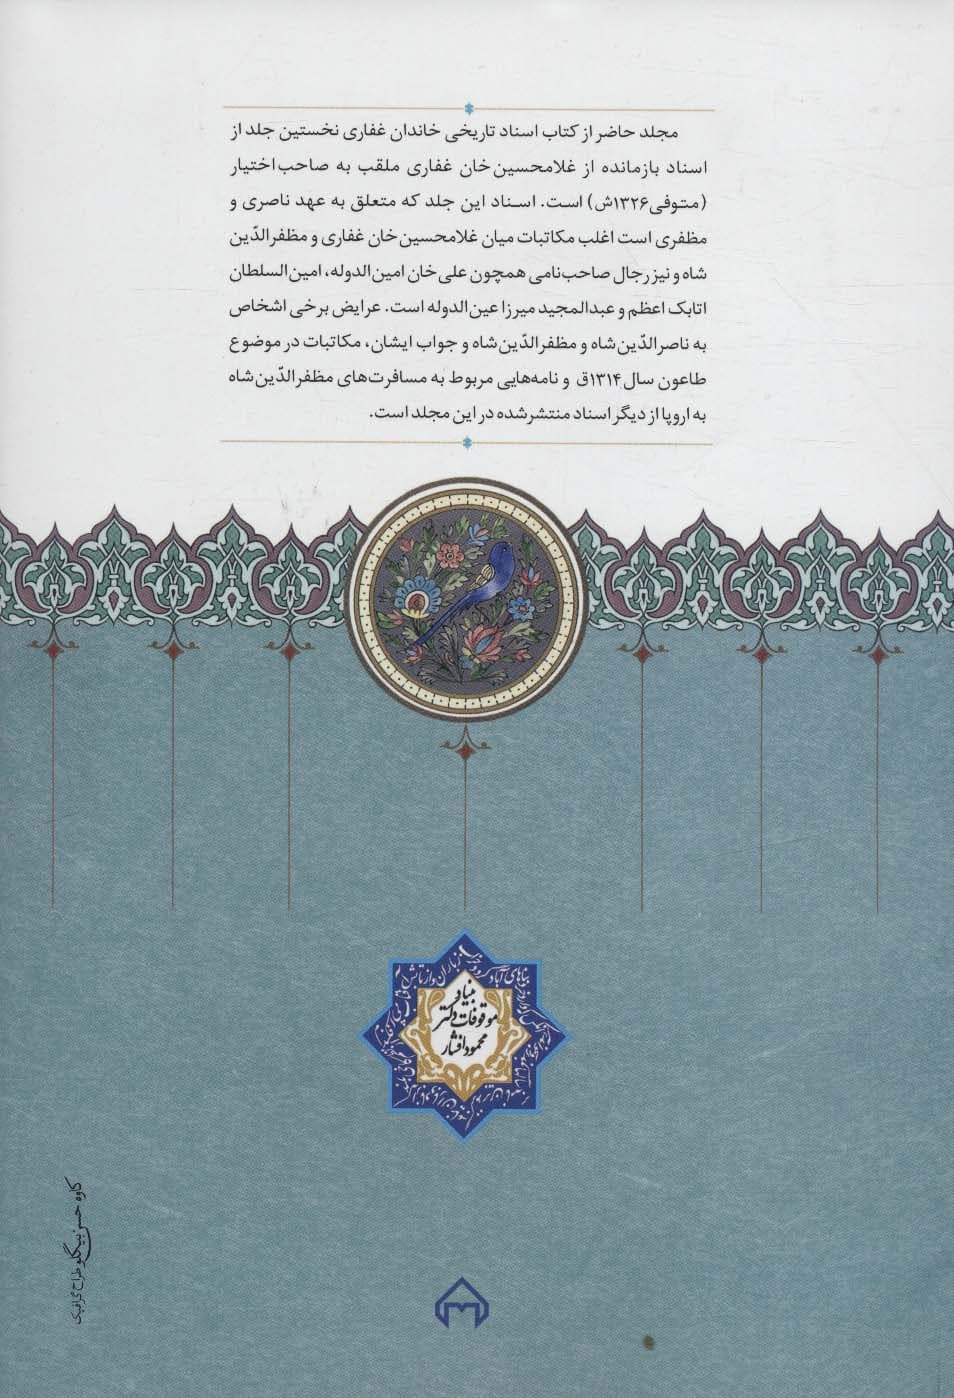 مجلد حاضر از کتاب اسناد تاریخی خاندان غفاری نخستین جلد از
اسناد بازمانده از غلامحسین‌خان غفاری ملقب به صاحب‌اختیار
(متوفی۱۳۲۶ش) است. اسناد این جلد که متعلق به عهد ناصری و
مظفری است اغلب مکاتبات میان غلامحسین‌خان غفاری و مظفرالدّین
شاه و نیز رجال صاحب‌نامی همچون علی‌خان امین‌الدوله، امین‌السلطان
اتابک اعظم و عبدالمجید میرزا عین‌الدوله است. عرایض برخی اشخاص
به ناصرالدّین‌شاه و مظفرالدّین‌شاه و جواب ایشان، مکاتبات در موضوع
طاعون سال ۱۳۱۴ق و نامه‌هایی مربوط به مسافرت‌های مظفرالدّین‌شاه
به اروپا از دیگر اسناد منتشرشده در این مجلد است.
بنیاد
موقوفات دکتر
محمود افشار
کاوه حسن‌بیگلو طراح گرافیک